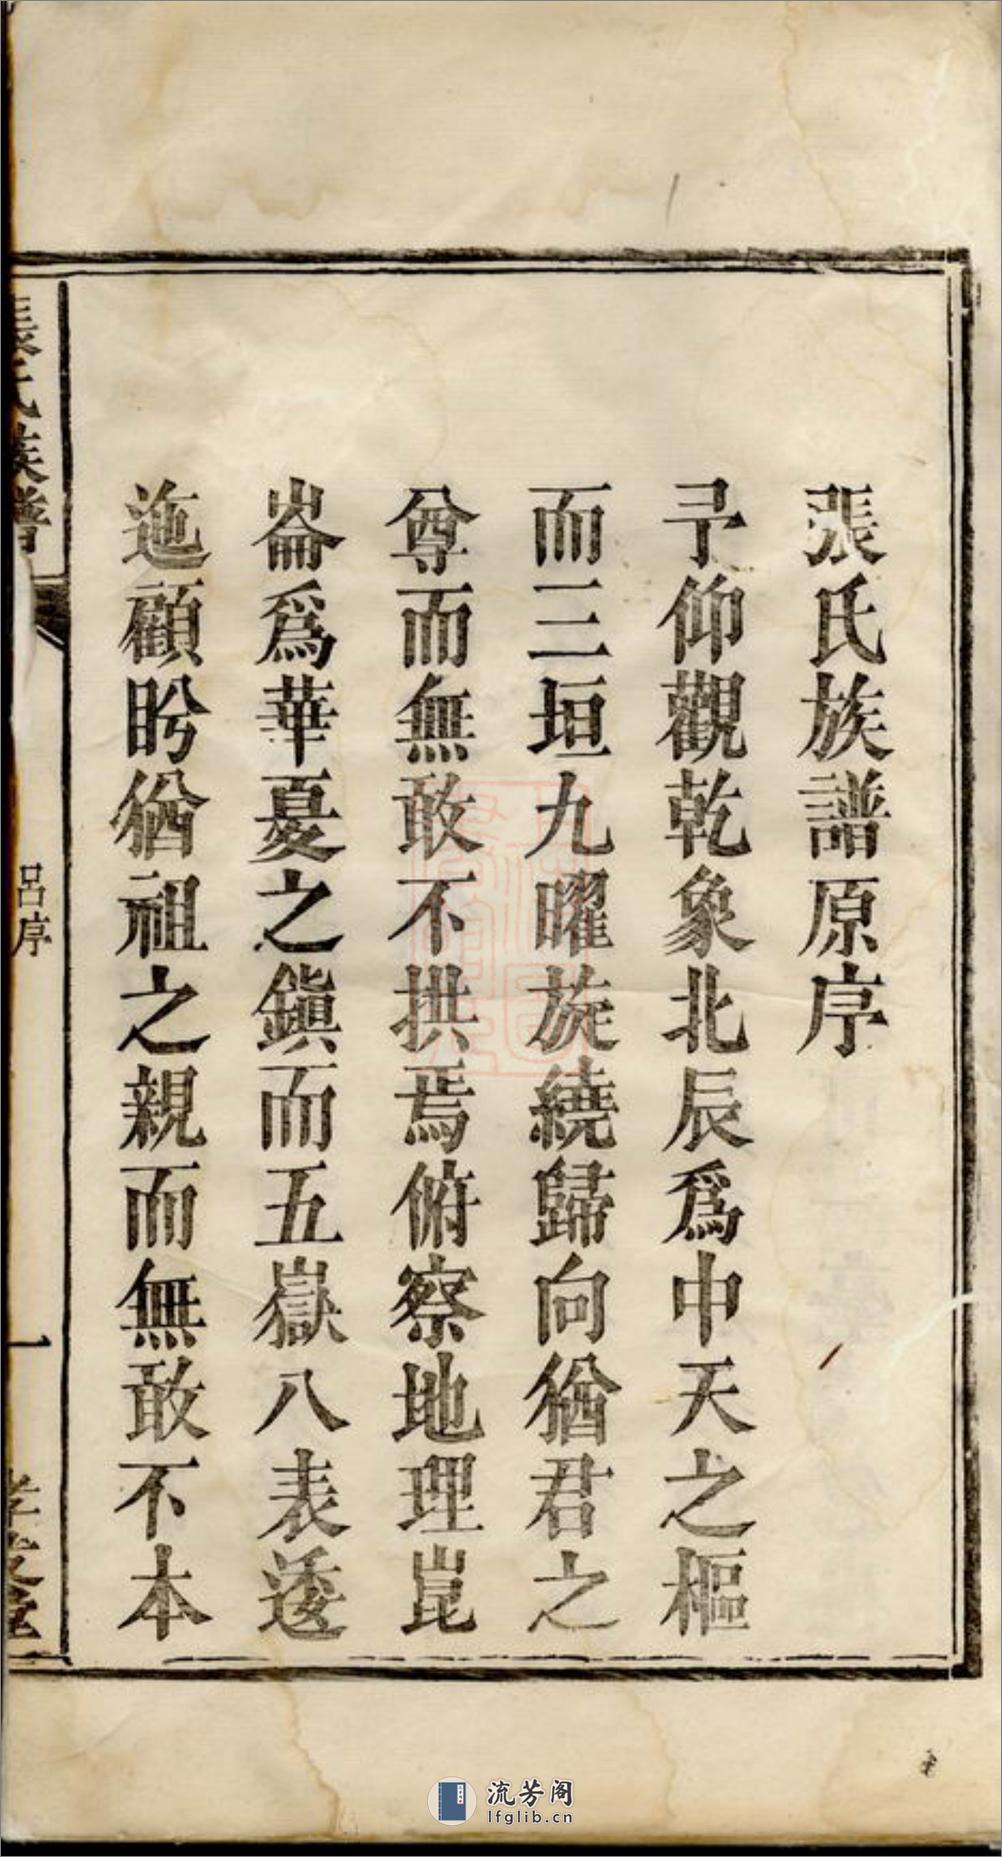 張氏族譜原序
予仰觀乾象北辰爲中天之樞
而三垣九曜旋繞歸向猶君之
尊而無敢不拱焉俯察地理崑
崙爲華夏之鎭而五嶽八表逶
迤顧盻猶祖之親而無敢不本
張氏族譜
呂序
一
流芳阁
lfglib.cn